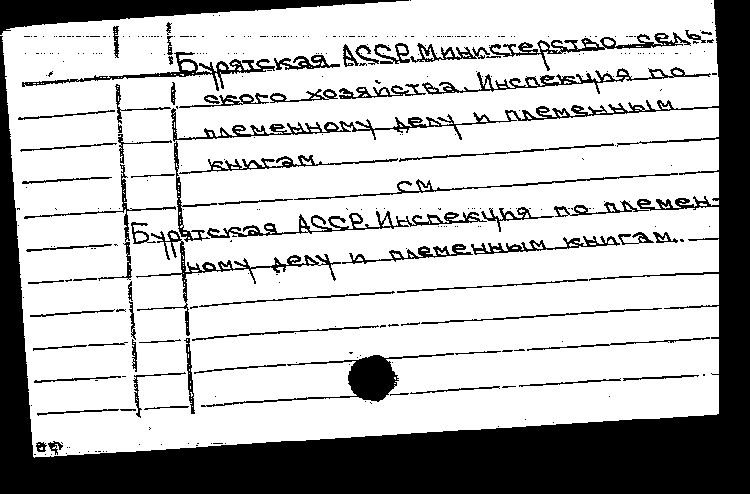 Бурятская АССР. Министерство сель-
ского хозяйства. Инспекция по
племенному делу и племенным
книгам.
см.
Бурятская АССР. Инспекция по племен-
ному делу и племенным книгам..